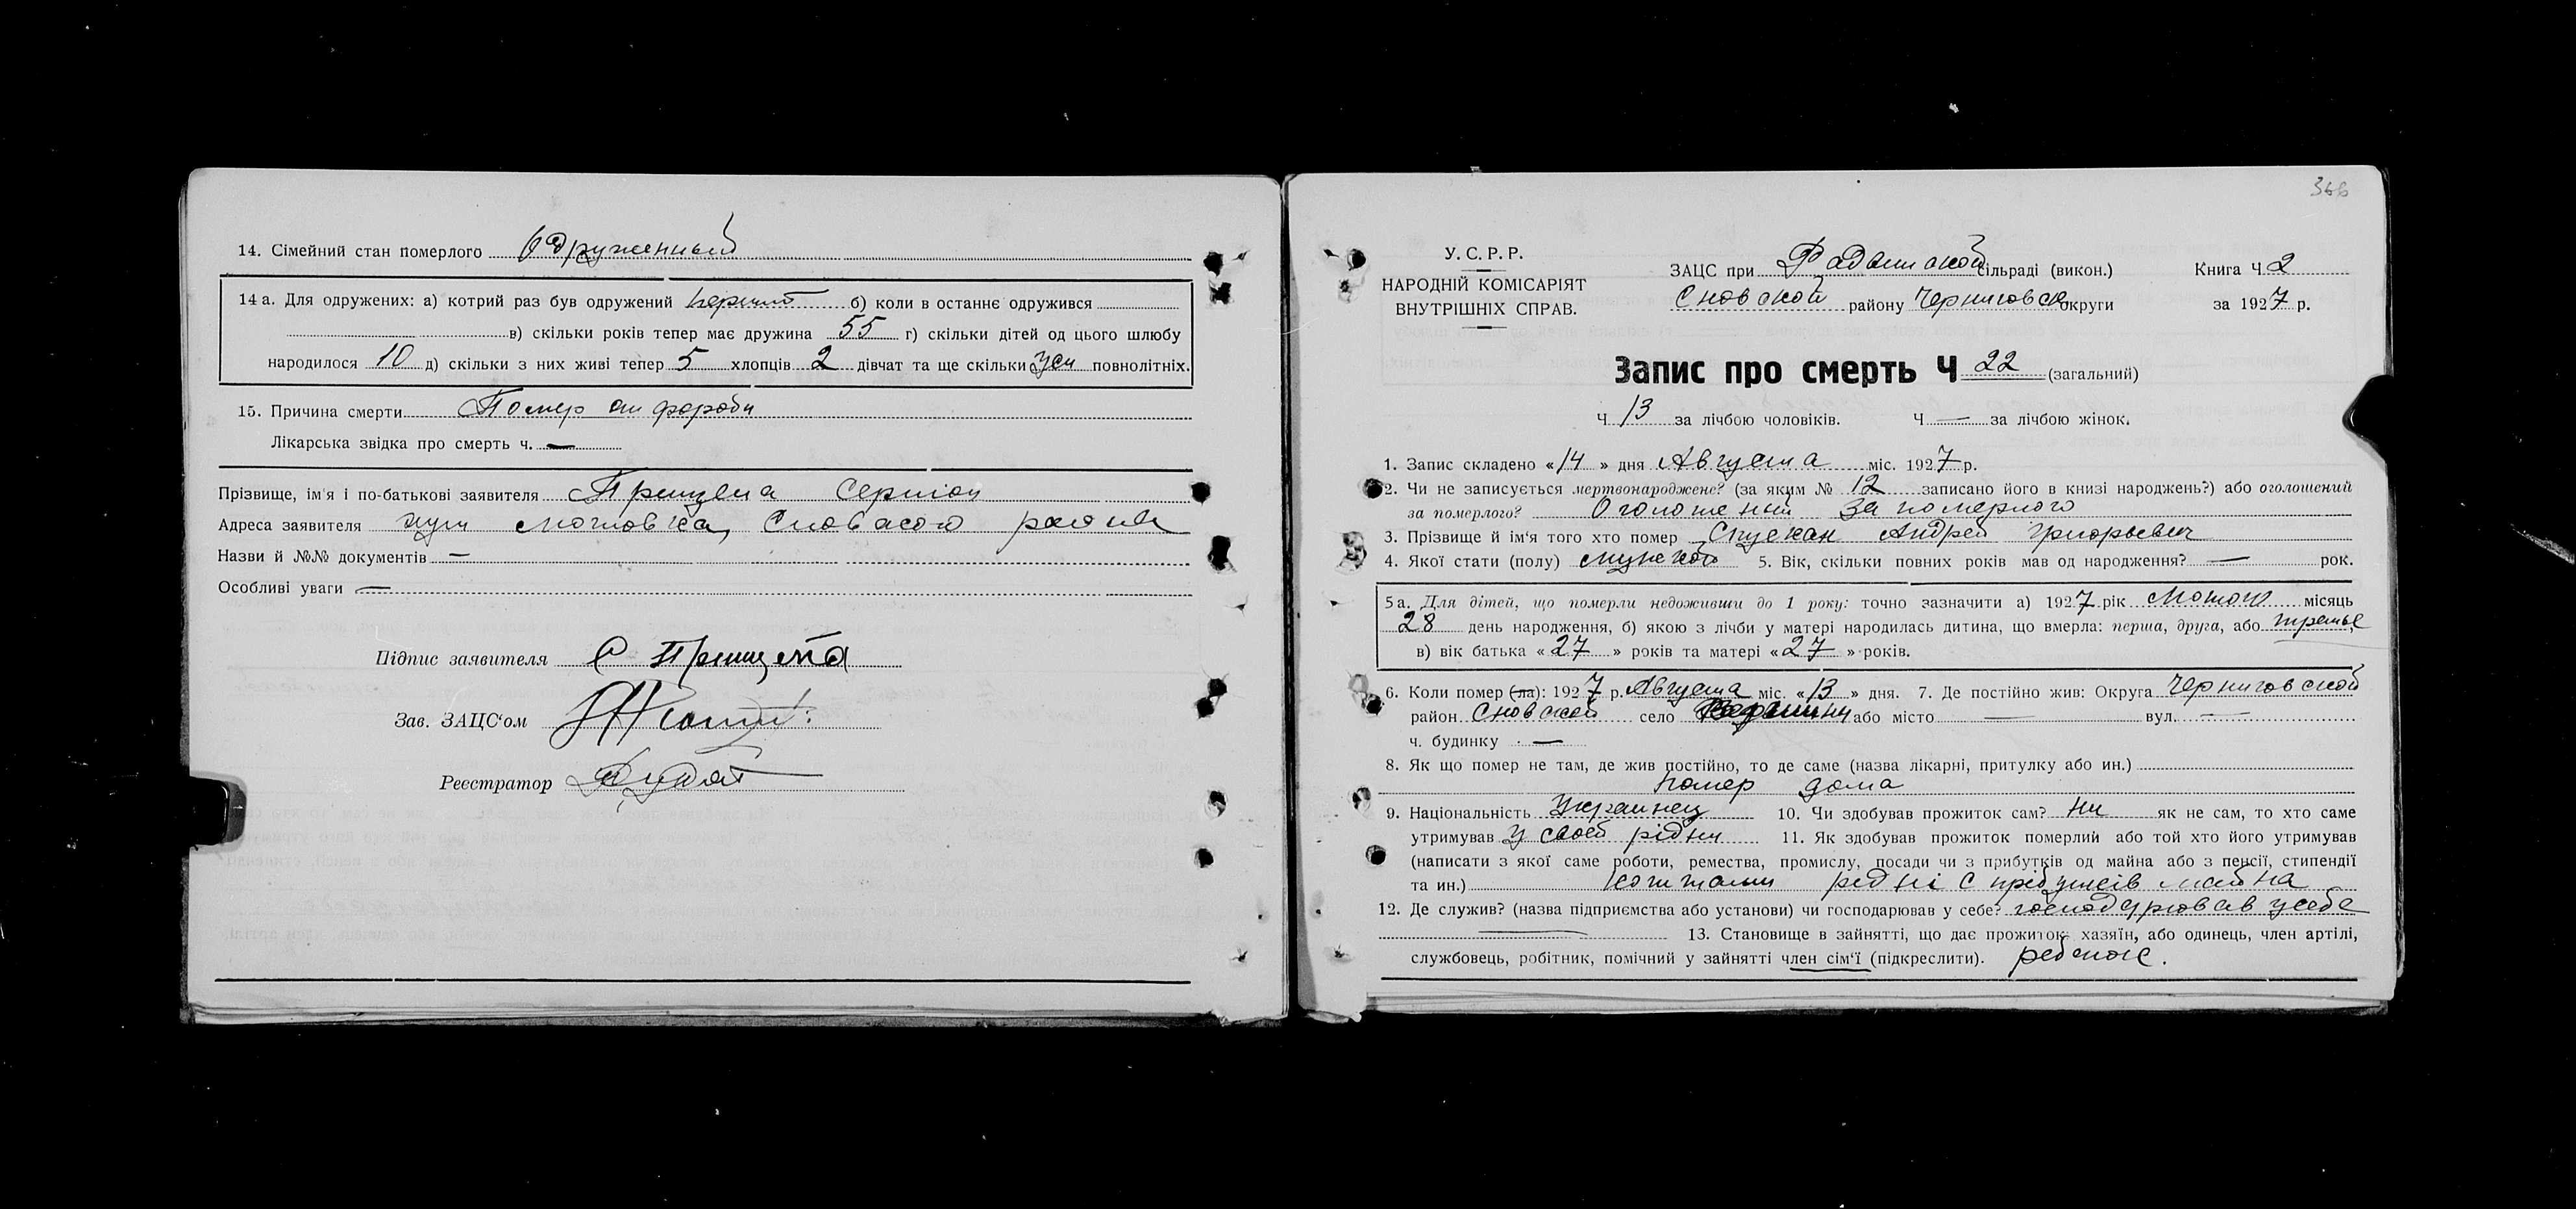 14. Сімейний стан померлого Одруженный
14 а. Для одружених: а) котрий раз був одружений первий б) коли в останнє одружився
в) скільки років тепер має дружина 55 г) скільки дітей од цього шлюбу
народилося 10 д) скільки з них живі тепер 5 хлопців 2 дівчат та ще скільки усі повнолітніх.
15. Причина смерти Помер
Лікарська звідка про смерть ч. —
Прізвище, ім'я і по-батькові заявителя Прищепа
Адреса заявителя хут Сновского района
Назви й №№ документів —
Особливі уваги —
Підпис заявителя С Прищепа
Зав. ЗАЦС'ом
Реєстратор
366
У. С. Р. Р.
НАРОДНІЙ КОМІСАРІЯТ
ВНУТРІШНІХ СПРАВ.
ЗАЦС при сільраді (викон.) Книга Ч. 2
Сновской району Черниговск округи за 1927 р.
Запис про смерть Ч 22 (загальний)
Ч 13 за лічбою чоловіків. Ч — за лічбою жінок.
1. Запис складено «14» дня Августа міс. 1927 р.
2. Чи не записується мертвонароджене? (за яким № 12 записано його в книзі народжень?) або оголошений
за померлого? Оголошений За померлого
3. Прізвище й ім'я того хто помер Андрей Григорьевич
4. Якої стати (полу) мужского 5. Вік, скільки повних років мав од народження? — рок.
5 а. Для дітей, що померли недоживши до 1 року: точно зазначити а) 1927 рік місяць
28 день народження, б) якою з лічби у матері народилась дитина, що вмерла: перша, друга, або третье
в) вік батька «27» років та матері «27» років.
6. Коли помер (ла): 1927 р. Августа міс. «13» дня. 7. Де постійно жив: Округа Черниговской
район Сновской село або місто — вул. —
ч. будинку —
8. Як що помер не там, де жив постійно, то де саме (назва лікарні, притулку або ин.)
помер дома
9. Національність Украинец 10. Чи здобував прожиток сам? ни як не сам, то хто саме
утримував у своей рідни 11. Як здобував прожиток померлий або той хто його утримував
(написати з якої саме роботи, ремества, промислу, посади чи з прибутків од майна або з пенсії, стипендії
та ин.) рідні с прібутків майна
12. Де служив? (назва підприємства або установи) чи господарював у себе? господарював у себе
— 13. Становище в зайнятті, що дає прожиток: хазяїн, або одинець, член артілі,
службовець, робітник, помічний у зайнятті член сім'ї (підкреслити). ребенок.